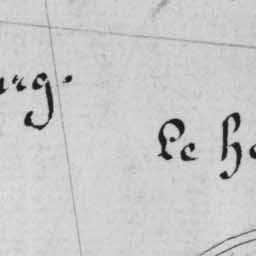 urg.
Le he